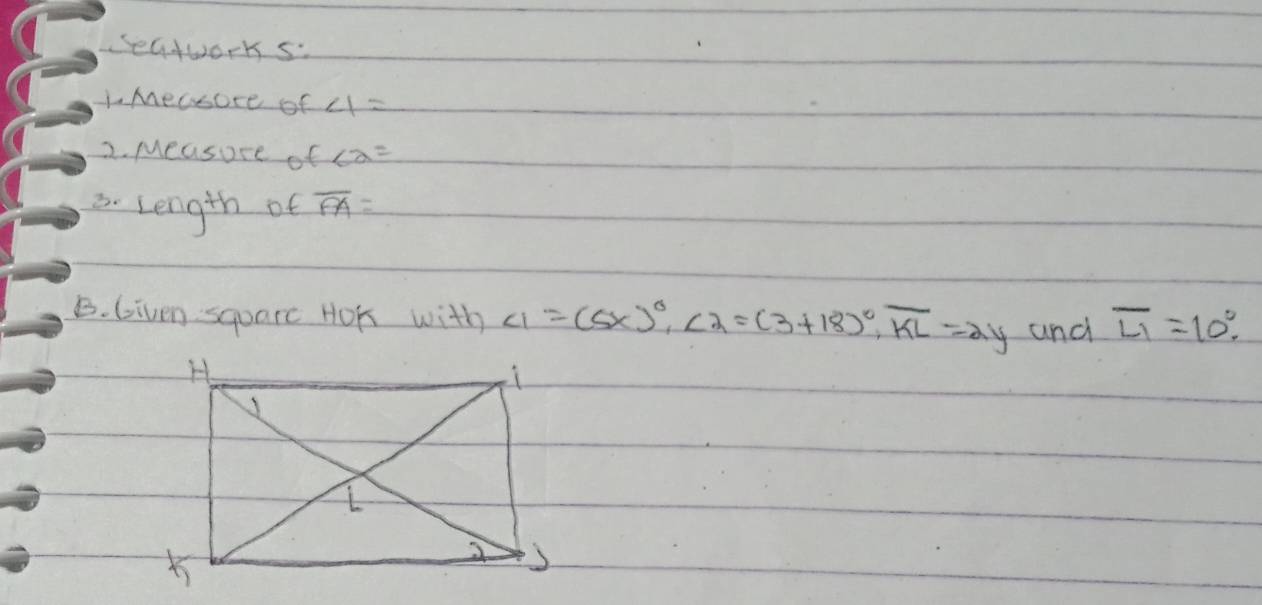 Seatwork 5:
1. Measure of <1 =
2. Measure of <2=
3. Length of F̅A̅ =
B. Given square HOK with <1 = (5x)°, <2 = (3+18)°, K̅L̅ = 2y and L̅I̅ = 10°.
H i
1
L
K 2 J